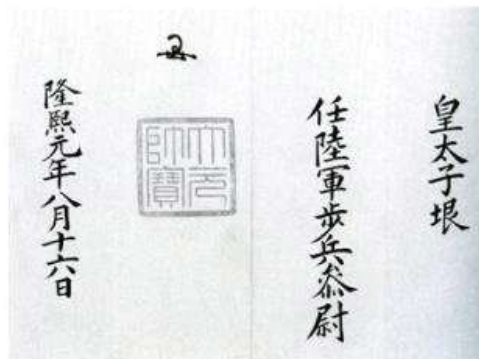 皇太子垠
任陸軍步兵叅尉
大元
帥寶
隆熙元年八月十六日